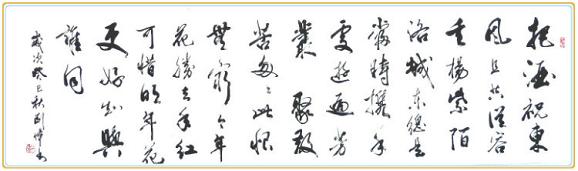 把酒祝東
風且共從容
垂楊紫陌
洛城東總是
當時攜手
處遊遍芳
叢聚散
苦匆匆此恨
無窮今年
花勝去年紅
可惜明年花
更好知與
誰同
歲次癸巳秋劉